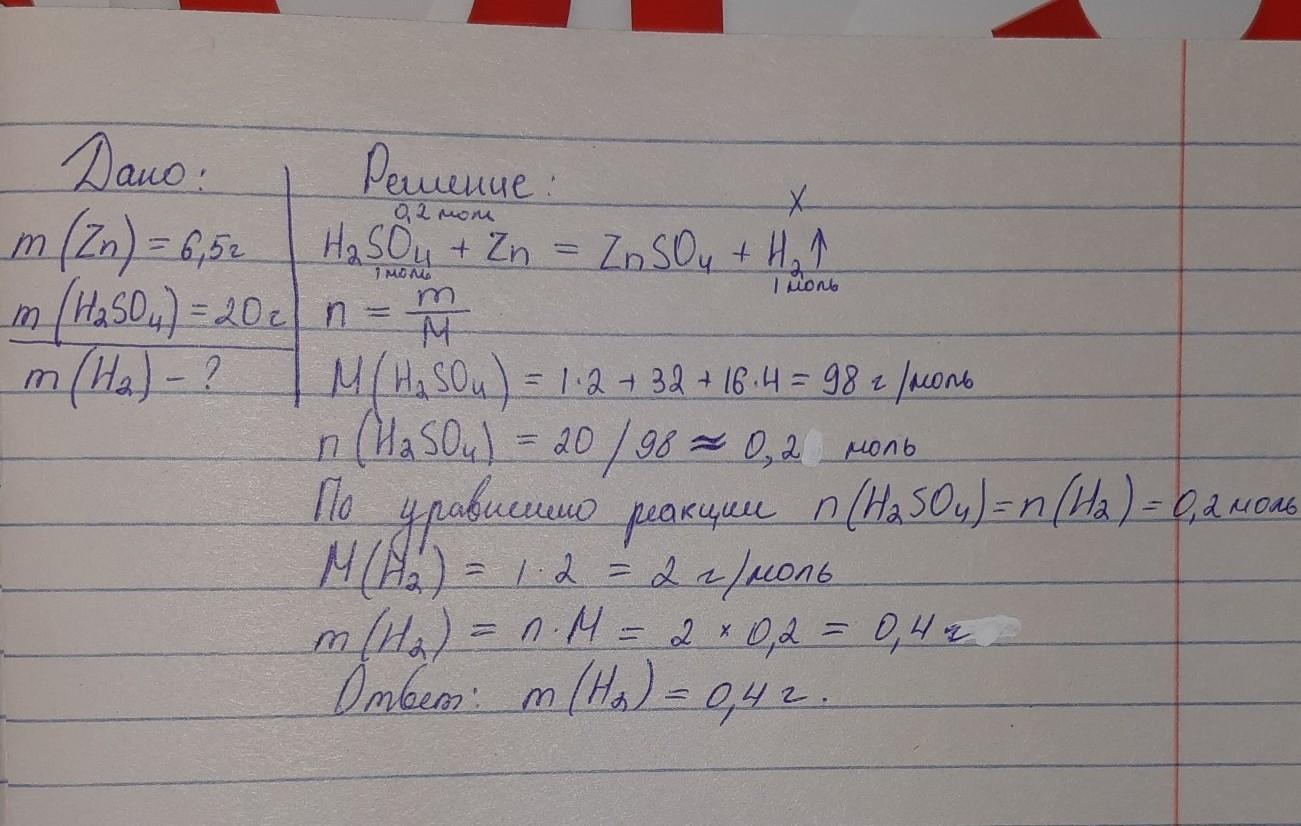 Дано:
m (Zn) = 6,5г
m (H₂SO₄) = 20 г
m (H₂) – ?
Решение:
0,2 моль X
H₂SO₄ + Zn = ZnSO₄ + H₂↑
1 моль 1 моль
n = m/M
M (H₂SO₄) = 1·2 + 32 + 16·4 = 98 г/моль
n (H₂SO₄) = 20 / 98 ≈ 0,2 моль
По уравнению реакции n(H₂SO₄) = n(H₂) = 0,2 моль
M(H₂) = 1·2 = 2 г/моль
m (H₂) = n·M = 2 × 0,2 = 0,4 г
Ответ: m (H₂) = 0,4 г.